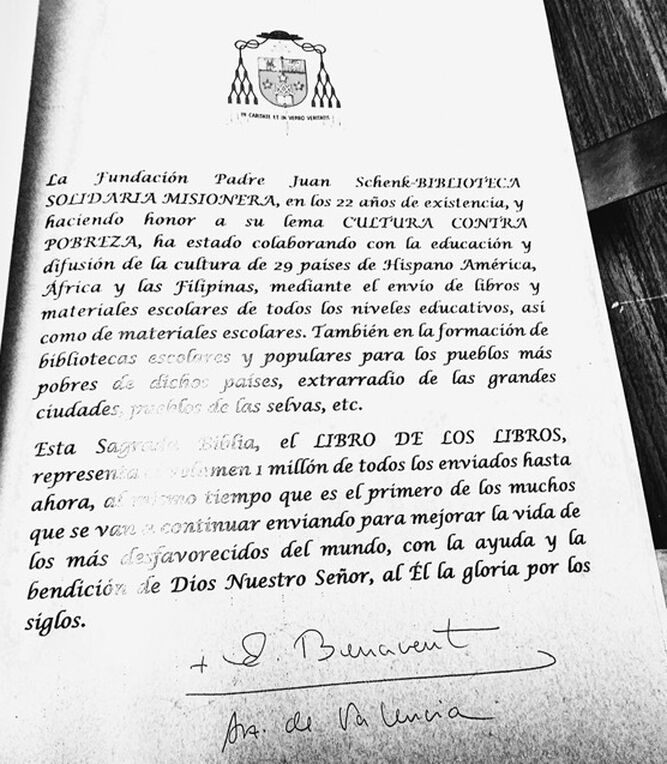 IN CARITATE ET IN VERBO VERITATIS
La Fundación Padre Juan Schenk-BIBLIOTECA
SOLIDARIA MISIONERA, en los 22 años de existencia, y
haciendo honor a su lema CULTURA CONTRA
POBREZA, ha estado colaborando con la educación y
difusión de la cultura de 29 países de Hispano América,
África y las Filipinas, mediante el envío de libros y
materiales escolares de todos los niveles educativos, así
como de materiales escolares. También en la formación de
bibliotecas escolares y populares para los pueblos más
pobres de dichos países, extrarradio de las grandes
ciudades, pueblos de las selvas, etc.
Esta Sagrada Biblia, el LIBRO DE LOS LIBROS,
representa el volumen 1 millón de todos los enviados hasta
ahora, al mismo tiempo que es el primero de los muchos
que se van a continuar enviando para mejorar la vida de
los más desfavorecidos del mundo, con la ayuda y la
bendición de Dios Nuestro Señor, al Él la gloria por los
siglos.
+ E. Benavent
Az. de Valencia